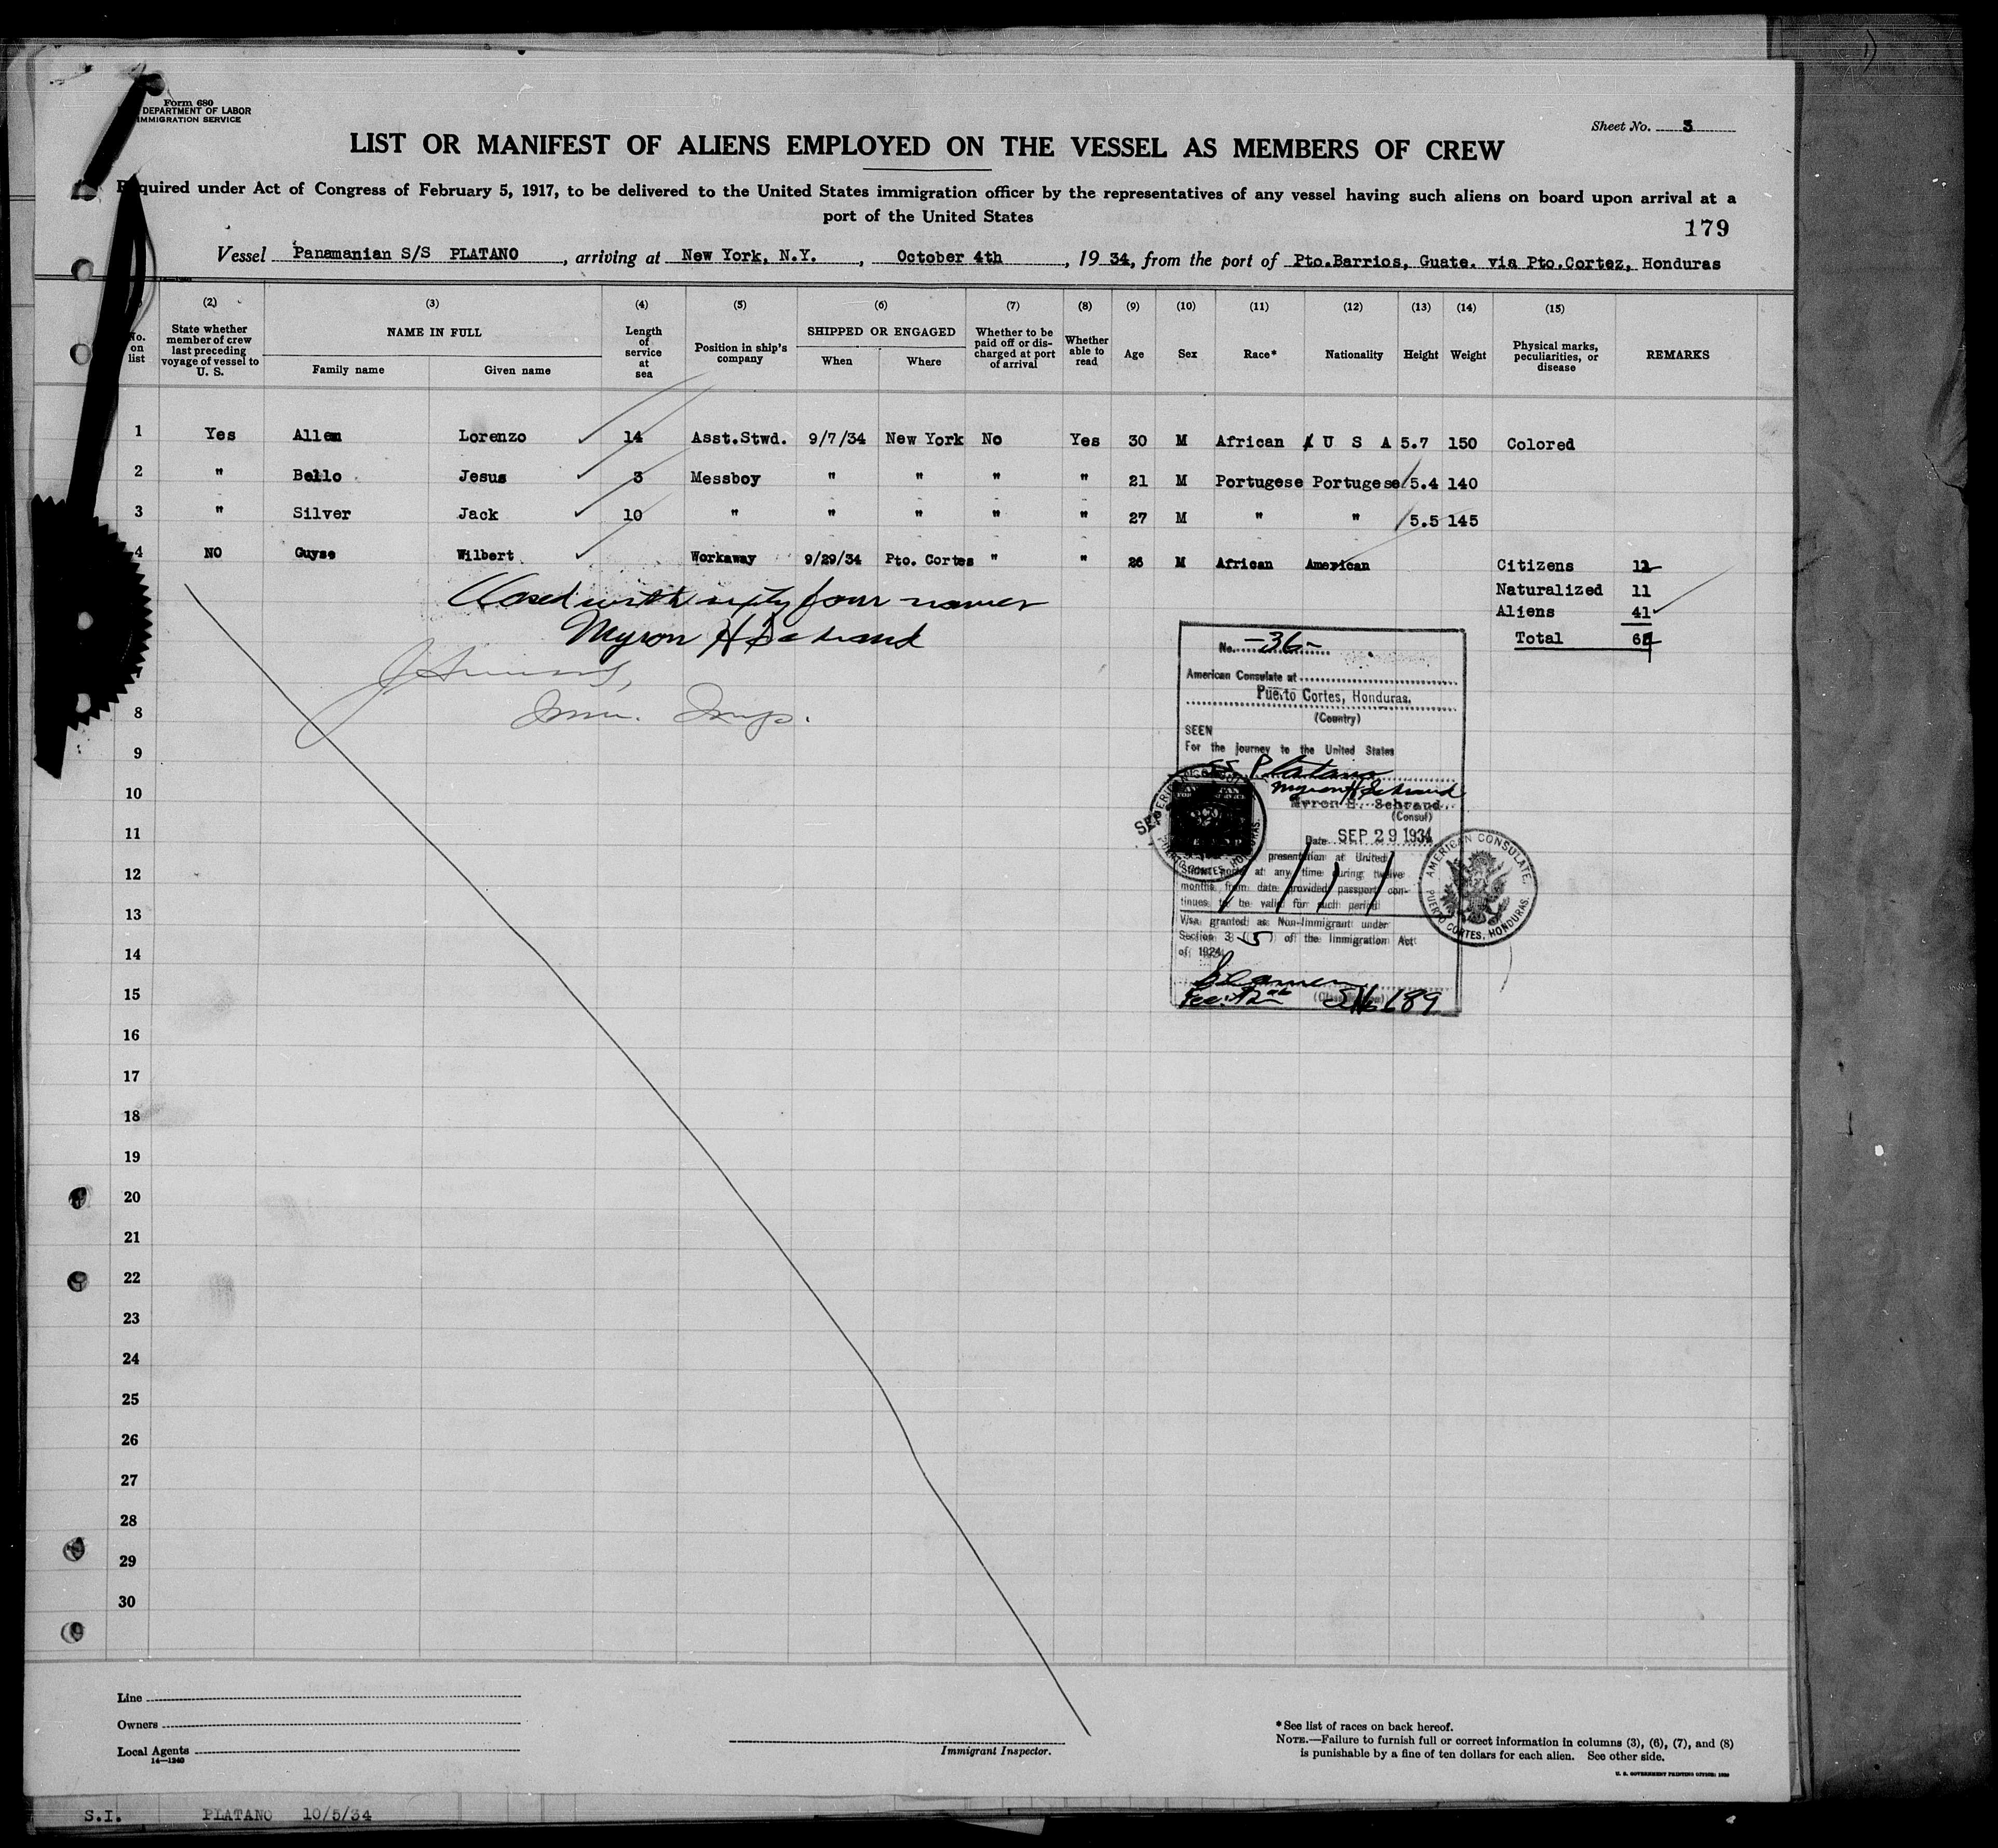 Form 680
DEPARTMENT OF LABOR
IMMIGRATION SERVICE
Sheet No. 3
LIST OR MANIFEST OF ALIENS EMPLOYED ON THE VESSEL AS MEMBERS OF CREW
Required under Act of Congress of February 5, 1917, to be delivered to the United States immigration officer by the representatives of any vessel having such aliens on board upon arrival at a
port of the United States
179
Vessel Panamanian S/S PLATANO, arriving at New York, N.Y., October 4th, 1934, from the port of Pto.Barrios, Guate. via Pto.Cortez, Honduras
(2) (3) (4) (5) (6) (7) (8) (9) (10) (11) (12) (13) (14) (15)
No. on list
State whether member of crew last preceding voyage of vessel to U. S.
NAME IN FULL
Family name
Given name
Length of service at sea
Position in ship's company
SHIPPED OR ENGAGED
When
Where
Whether to be paid off or discharged at port of arrival
Whether able to read
Age
Sex
Race*
Nationality
Height
Weight
Physical marks, peculiarities, or disease
REMARKS
1 Yes Allen Lorenzo 14 Asst.Stwd. 9/7/34 New York No Yes 30 M African U S A 5.7 150 Colored
2 " Bello Jesus 3 Messboy " " " " 21 M Portugese Portugese 5.4 140
3 " Silver Jack 10 " " " " " 27 M " " 5.5 145
4 NO Guyse Wilbert Workaway 9/29/34 Pto. Cortes " " 26 M African American
Citizens 12
Naturalized 11
Aliens 41
Total 64
Closed with sixty four names
Myron H Schraud
Imm. Insp.
No. -36-
American Consulate at
Puerto Cortes, Honduras.
(Country)
SEEN
For the journey to the United States
SS Platano
Myron H Schraud
Myron H. Schraud.
(Consul)
Date SEP 29 1934
presentation at United
States ports at any time during twelve
months from date provided passport con-
tinues to be valid for such period
Visa granted as Non-Immigrant under
Section 3 (5) of the Immigration Act
of 1924
Seamen
S No 189
AMERICAN CONSULATE, PUERTO CORTES, HONDURAS.
8
9
10
11
12
13
14
15
16
17
18
19
20
21
22
23
24
25
26
27
28
29
30
Line
Owners
Local Agents
14—1240
Immigrant Inspector.
*See list of races on back hereof.
NOTE.—Failure to furnish full or correct information in columns (3), (6), (7), and (8)
is punishable by a fine of ten dollars for each alien. See other side.
U. S. GOVERNMENT PRINTING OFFICE:
S.I. PLATANO 10/5/34